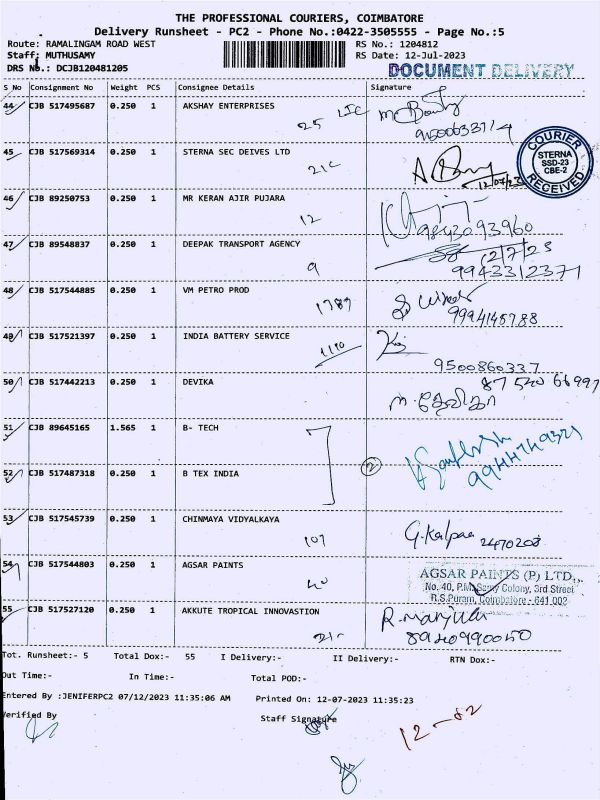 THE PROFESSIONAL COURIERS, COIMBATORE
Delivery Runsheet - PC2 - Phone No.:0422-3505555 - Page No.:5
Route: RAMALINGAM ROAD WEST RS No.: 1204812
Staff: MUTHUSAMY RS Date: 12-Jul-2023
DRS No.: DCJB120481205 DOCUMENT DELIVERY
S No Consignment No Weight PCS Consignee Details Signature
44 CJB 517495687 0.250 1 AKSHAY ENTERPRISES
25 LIC
45 CJB 517569314 0.250 1 STERNA SEC DEIVES LTD
COURIER
STERNA
SSD-23
CBE-2
RECEIVED
12/07/23
46 CJB 89250753 0.250 1 MR KERAN AJIR PUJARA
12 9843093960
47 CJB 89548837 0.250 1 DEEPAK TRANSPORT AGENCY
12/7/23
9 9943312371
48 CJB 517544885 0.250 1 VM PETRO PROD
1787 9994145788
49 CJB 517521397 0.250 1 INDIA BATTERY SERVICE
1190
9500860337
50 CJB 517442213 0.250 1 DEVIKA 87540 66997
ந.தேவிகா
51 CJB 89645165 1.565 1 B- TECH
2
52 CJB 517487318 0.250 1 B TEX INDIA
53 CJB 517545739 0.250 1 CHINMAYA VIDYALKAYA
107 G.Kalpaa 2470208
54 CJB 517544803 0.250 1 AGSAR PAINTS
40
AGSAR PAINTS (P) LTD.,
No. 40, P.M.Samy Colony, 3rd Street
R.S.Puram, Coimbatore - 641 002
55 CJB 517527120 0.250 1 AKKUTE TROPICAL INNOVASTION
R.manjula
8940990050
Tot. Runsheet:- 5 Total Dox:- 55 I Delivery:- II Delivery:- RTN Dox:-
Out Time:- In Time:- Total POD:-
Entered By :JENIFERPC2 07/12/2023 11:35:06 AM Printed On: 12-07-2023 11:35:23
Verified By Staff Signature
12-02